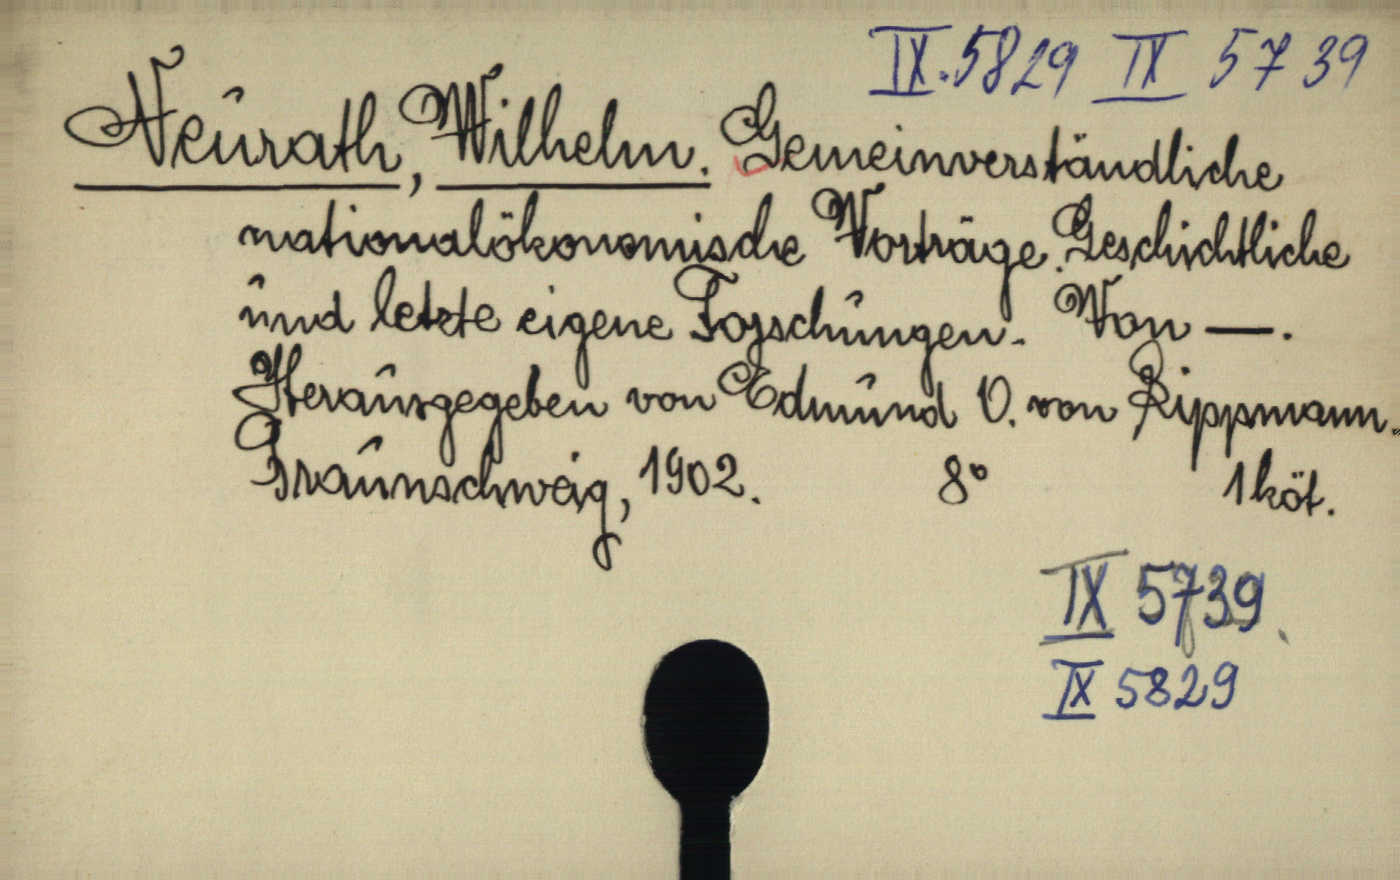 IX. 5829 IX 5739
Neurath, Wilhelm. Gemeinverständliche
nationalökonomische Vorträge. Geschichtliche
und letzte eigene Forschungen. Von —.
Herausgegeben von Edmund O. von Lippmann.
Braunschweig, 1902. 8° 1 köt.
IX 5739
IX 5829